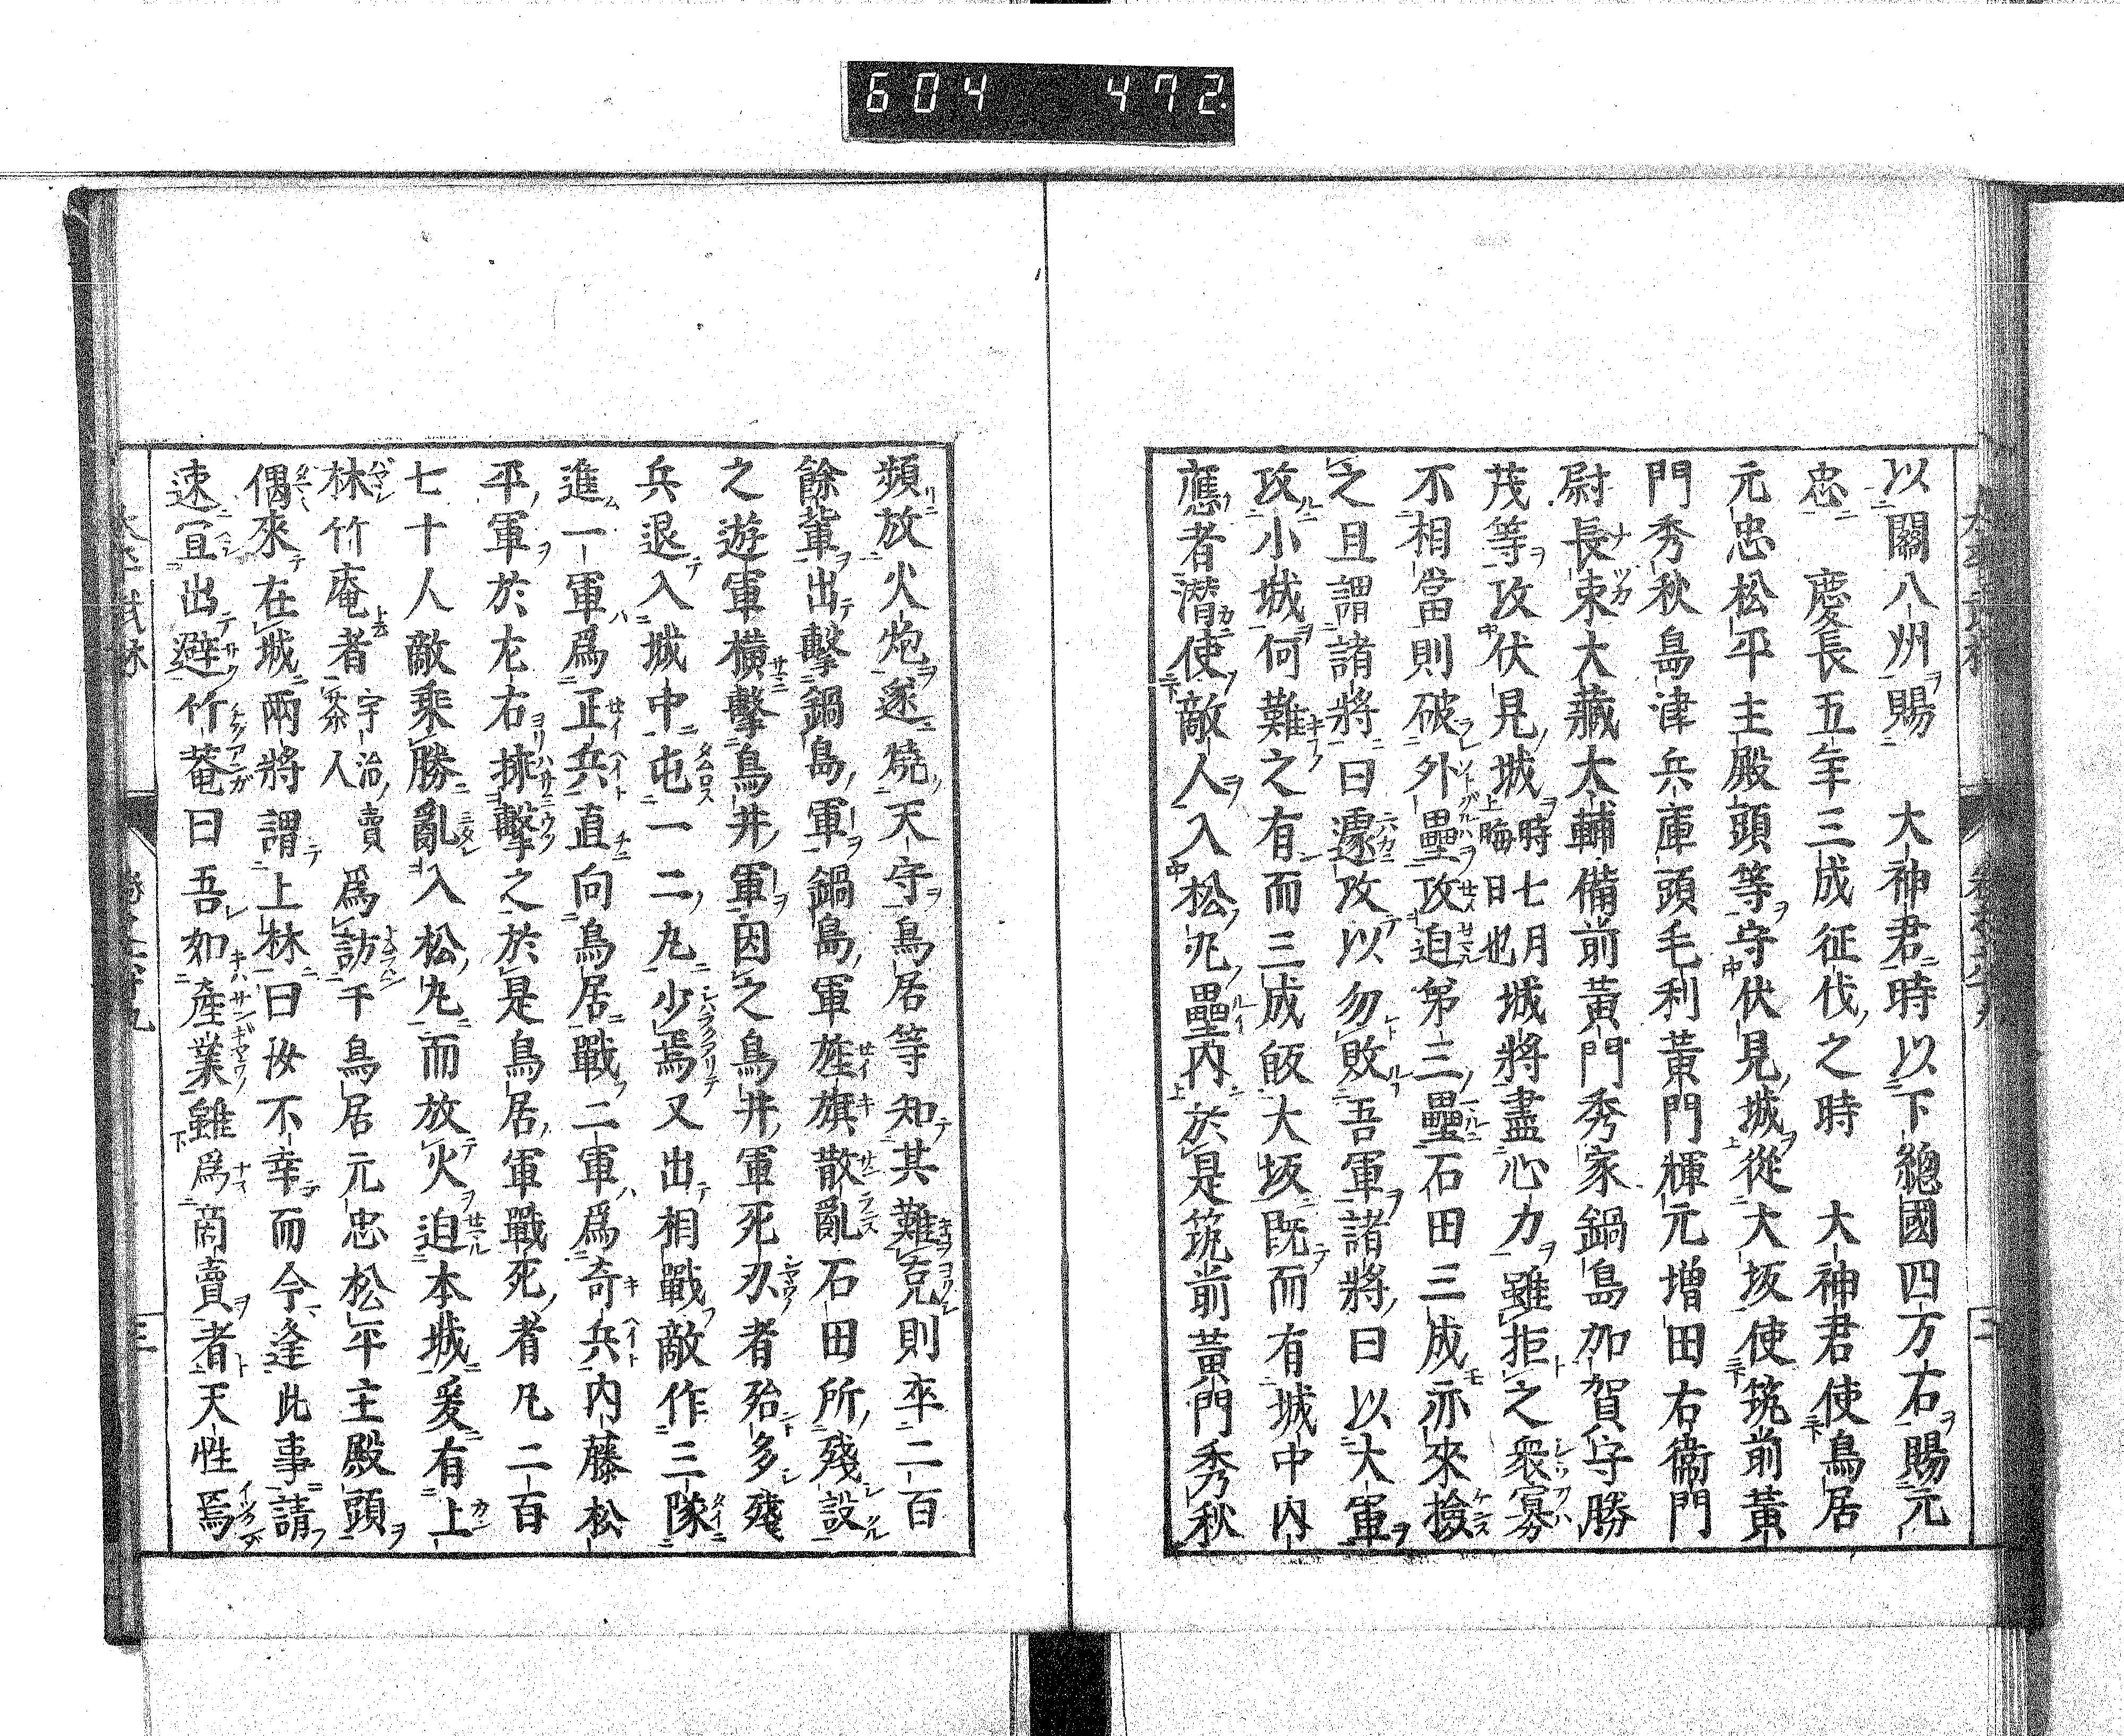 604 472
以關八州賜 大神君時以下總國四方右賜元
忠 慶長五年三成征伐之時 大神君使鳥居
元忠松平主殿頭等守伏見城從大坂使筑前黃
門秀秋島津兵庫頭毛利黃門輝元増田右衞門
尉長束大藏太輔備前黃門秀家鍋島加賀守勝
茂等攻伏見城時七月晦日也城將盡心力雖拒之衆寡
不相當則破外壘攻迫第三壘石田三成亦來撿
之且謂諸將曰遽攻以勿敗吾軍諸將曰以大軍
攻小城何難之有而三成皈大坂既而有城中内
應者潛使敵人入松丸壘内於是筑前黃門秀秋
頻放火炮遂燒天守鳥居等知其難克則卒二百
餘輩出擊鍋島軍鍋島軍旌旗散亂石田所殘設
之遊軍橫擊鳥井軍因之鳥井軍死刃者殆多殘
兵退入城中屯一二丸少焉又出相戰敵作三隊
進一軍爲正兵直向鳥居戰二軍爲奇兵内藤松
平軍於左右挾擊之於是鳥居軍戰死者凡二百
七十人敵乘勝亂入松丸而放火迫本城爰有上
林竹庵者宇治賣茶人爲訪于鳥居元忠松平主殿頭
偶來在城兩將謂上林曰汝不幸而今逢此事請
速宜出避竹菴曰吾如産業雖爲商賣者天性焉